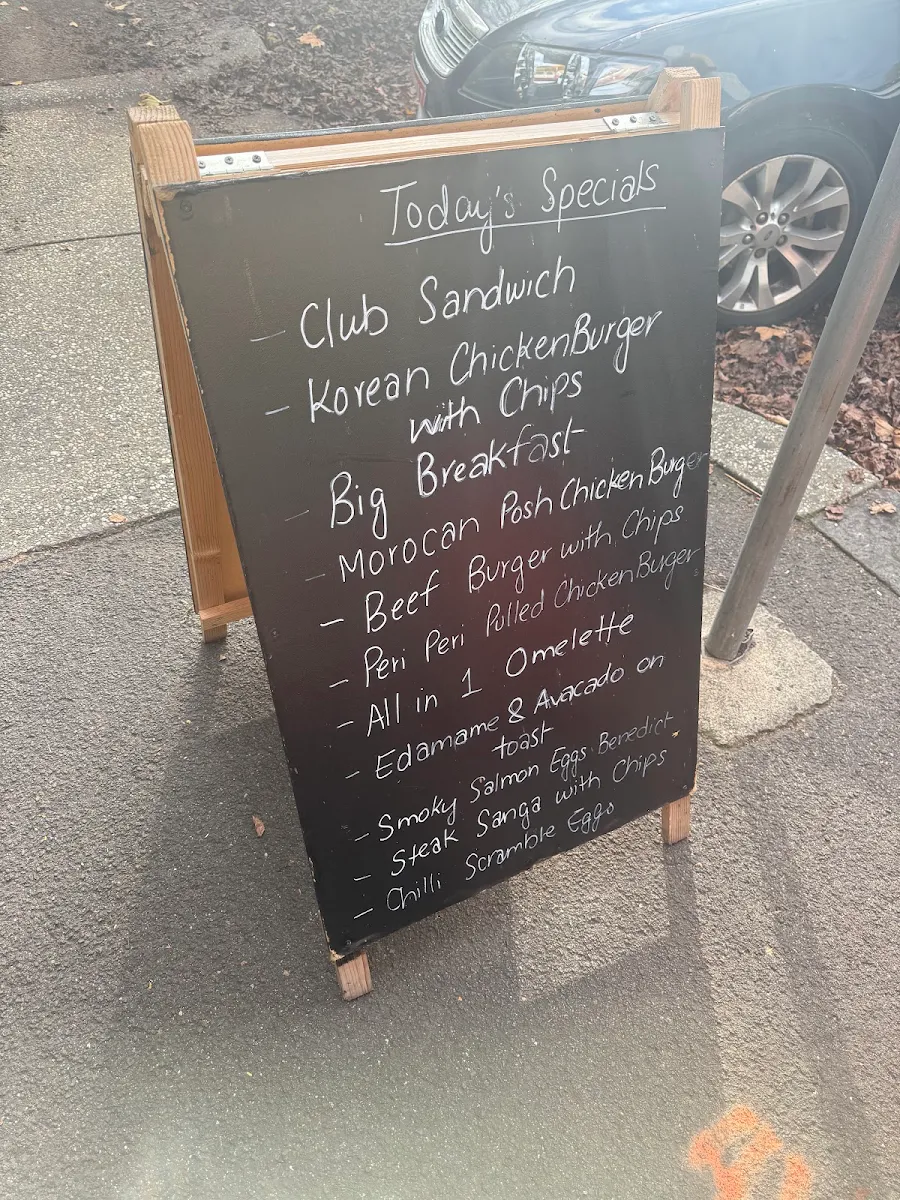 Today's Specials
- Club Sandwich
- Korean Chicken Burger
with Chips
- Big Breakfast
- Morocan Posh Chicken Burger
- Beef Burger with Chips
- Peri Peri Pulled Chicken Burger
- All in 1 Omelette
- Edamame & Avacado on
toast
- Smoky Salmon Eggs Benedict
- Steak Sanga with Chips
- Chilli Scramble Eggs